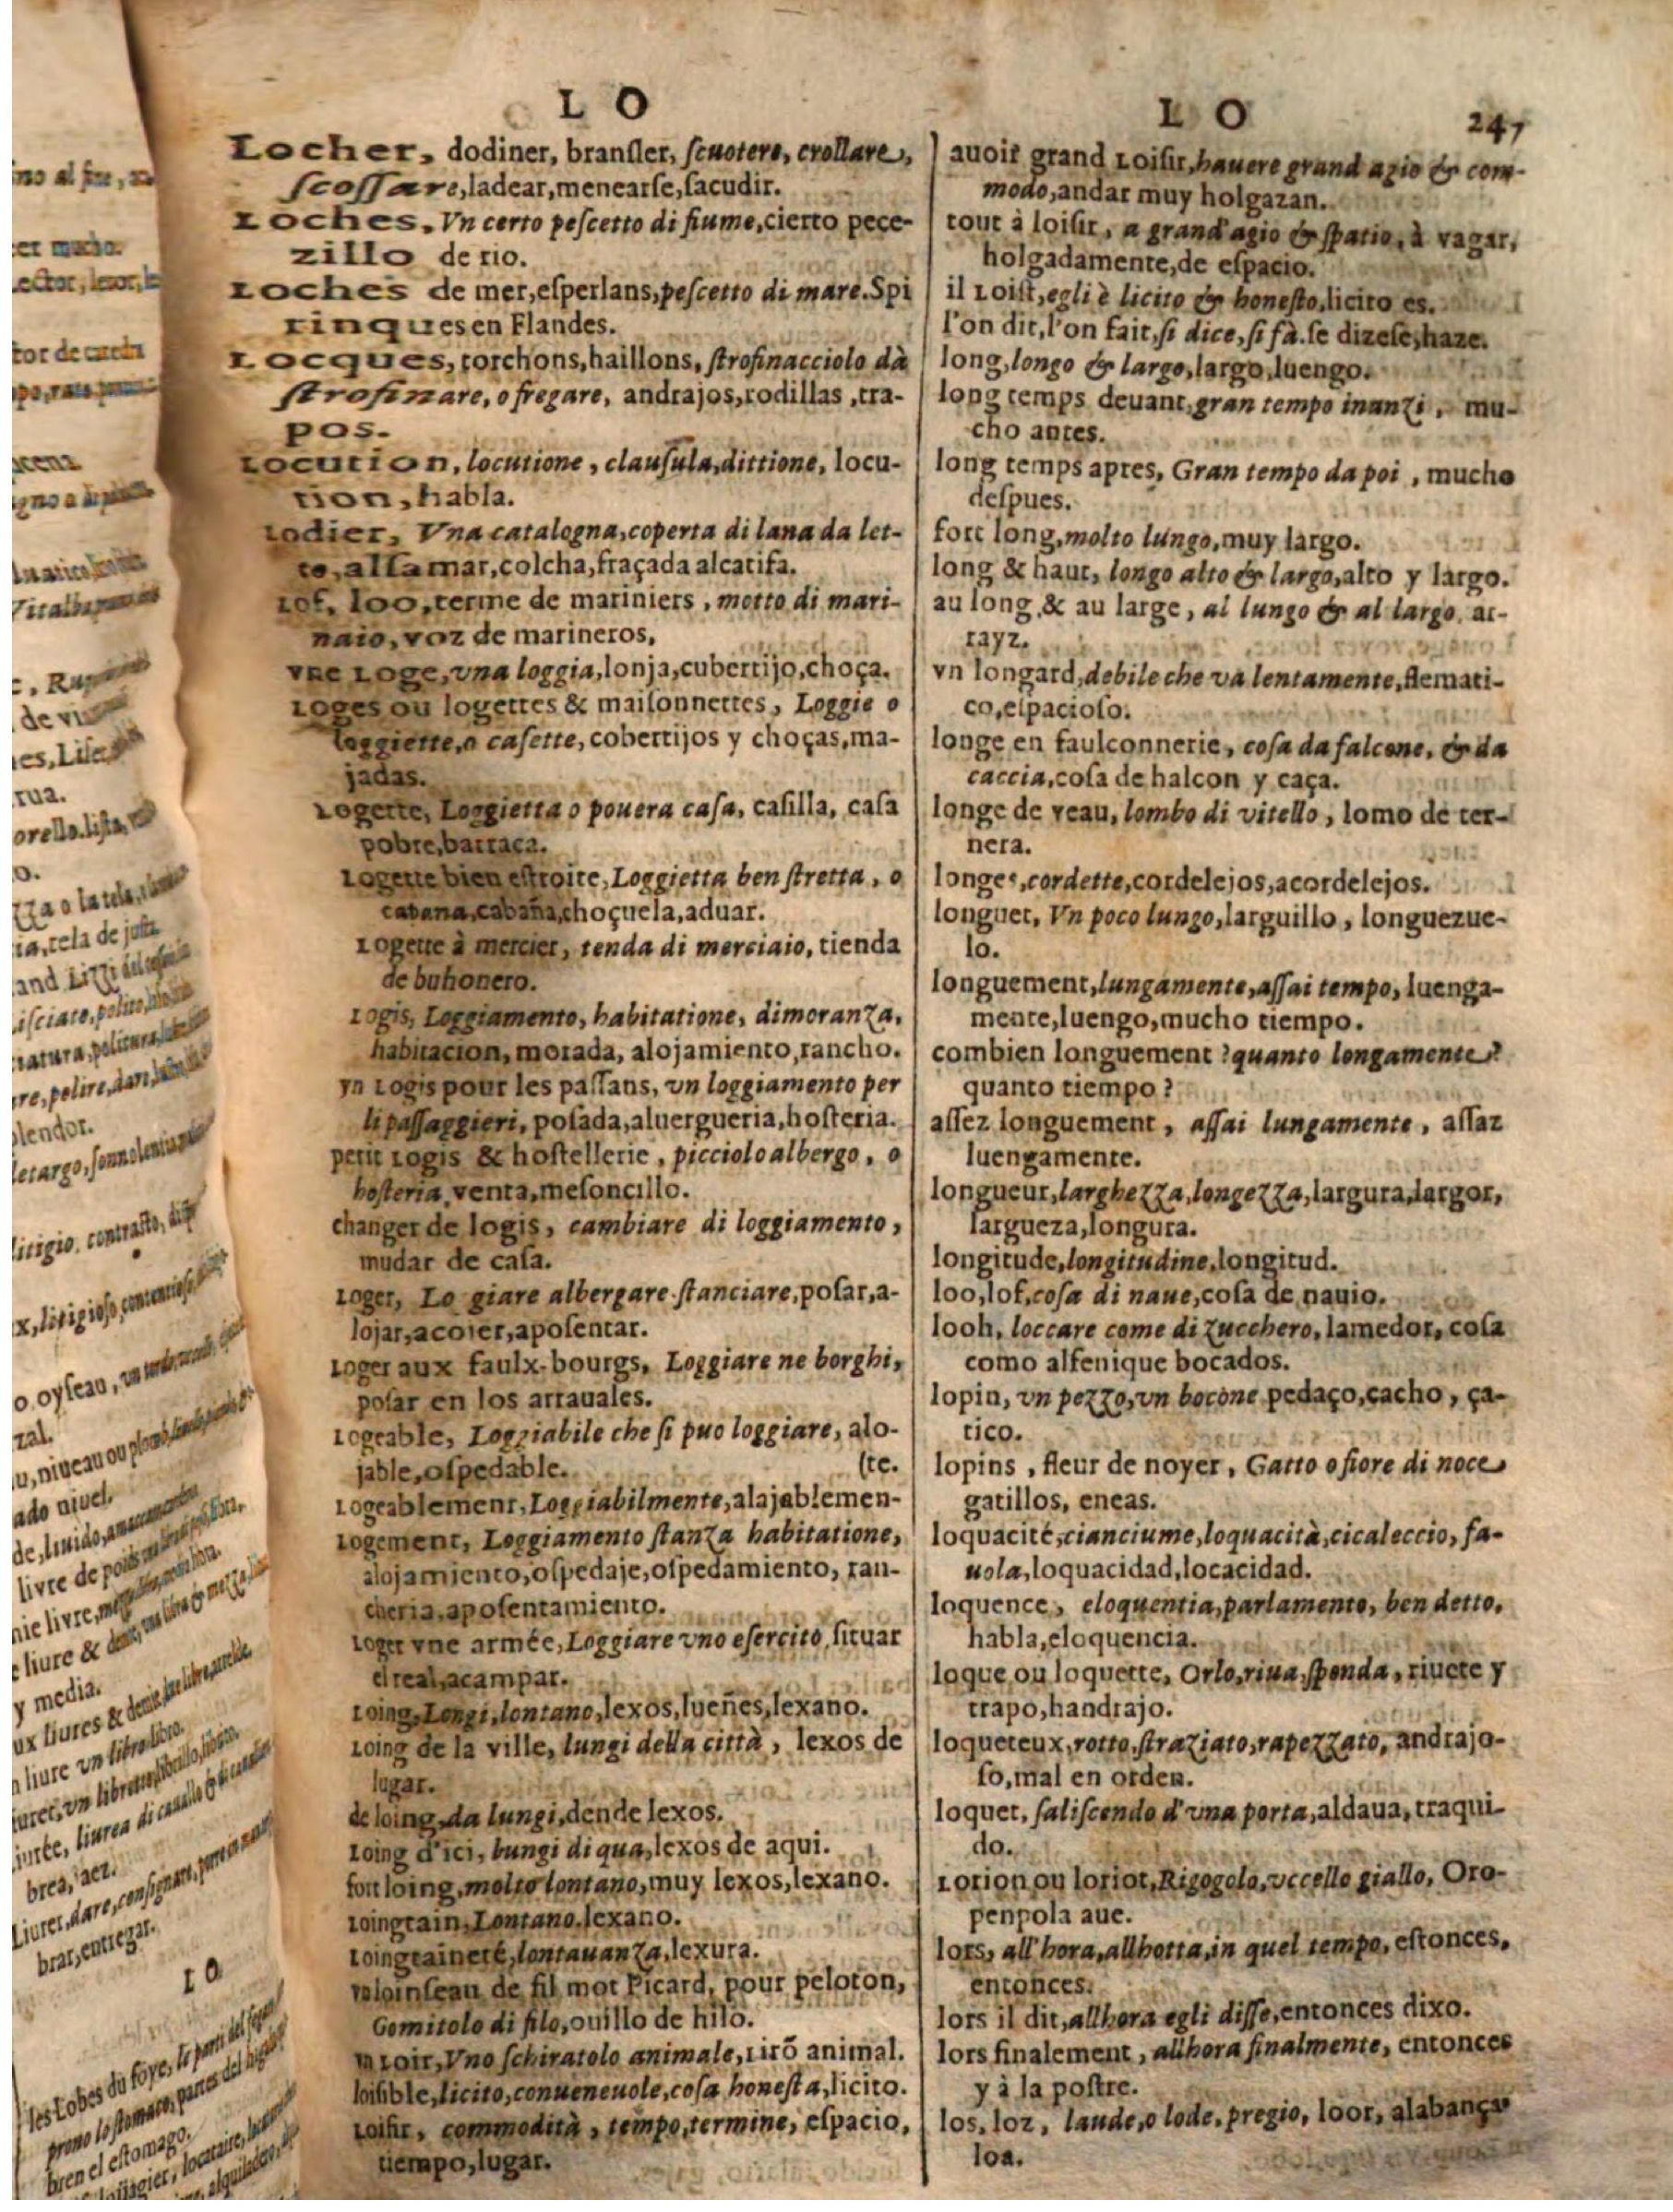 L O
Locher, dodiner, branſler, ſcuotere, crollare,
ſcoſſare, ladear, menearſe, ſacudir.
Loches, Vn certo peſcetto di fiume, cierto pece-
zillo de rio.
Loches de mer, eſperlans, peſcetto di mare. Spi
rinques en Flandes.
Locques, torchons, haillons, ſtrofinacciolo dà
ſtrofinare, o fregare, andrajos, rodillas, tra-
pos.
Locution, locutione, clauſula, dittione, locu-
tion, habla.
Lodier, Vna catalogna, coperta di lana da let-
to, alfamar, colcha, fraçada alcatifa.
Lof, loo, terme de mariniers, motto di mari-
naio, voz de marineros,
vne Loge, vna loggia, lonja, cubertijo, choça.
Loges ou logettes & maiſonnettes, Loggie o
loggiette, o caſette, cobertijos y choças, ma-
jadas.
Logette, Loggietta o pouera caſa, caſilla, caſa
pobre, barraca.
Logette bien eſtroite, Loggietta ben ſtretta, o
cabana, cabaña, choçuela, aduar.
Logette à mercier, tenda di merciaio, tienda
de buhonero.
Logis, Loggiamento, habitatione, dimoranza,
habitacion, morada, alojamiento, rancho.
vn Logis pour les paſſans, vn loggiamento per
li paſſaggieri, poſada, aluergueria, hoſteria.
petit Logis & hoſtellerie, picciolo albergo, o
hoſteria, venta, meſoncillo.
changer de logis, cambiare di loggiamento,
mudar de caſa.
Loger, Lo giare albergare ſtanciare, poſar, a-
lojar, acojer, apoſentar.
Loger aux faulx-bourgs, Loggiare ne borghi,
poſar en los arrauales.
Logeable, Loggiabile che ſi puo loggiare, alo-
jable, oſpedable. (te.
Logeablement, Loggiabilmente, alajablemen-
Logement, Loggiamento ſtanza habitatione,
alojamiento, oſpedaje, oſpedamiento, ran-
cheria, apoſentamiento.
Loger vne armée, Loggiare vno eſercito, ſituar
el real, acampar.
Loing, Longi, lontano, lexos, lueñes, lexano.
Loing de la ville, lungi della città, lexos de
lugar.
de loing, da lungi, dende lexos.
Loing d'ici, bungi di qua, lexos de aqui.
fort loing, molto lontano, muy lexos, lexano.
Loingtain, Lontano, lexano.
Loingtaineté, lontauanza, lexura.
vn loinſeau de fil mot Picard, pour peloton,
Gomitolo di filo, ouillo de hilo.
vn Loir, Vno ſchiratolo animale, Lirõ animal.
loiſible, licito, conueneuole, coſa honeſta, licito.
Loiſir, commodità, tempo, termine, eſpacio,
tiempo, lugar.
L O 247
auoir grand Loiſir, hauere grand agio & com-
modo, andar muy holgazan.
tout à loiſir, a grand' agio & ſpatio, à vagar,
holgadamente, de eſpacio.
il Loiſt, egli è licito & honeſto, licito es.
l'on dit, l'on fait, ſi dice, ſi fà. ſe dizeſe, haze.
long, longo & largo, largo, luengo.
long temps deuant, gran tempo inanzi, mu-
cho antes.
long temps apres, Gran tempo da poi, mucho
deſpues.
fort long, molto lungo, muy largo.
long & haut, longo alto & largo, alto y largo.
au long, & au large, al lungo & al largo, ar-
rayz.
vn longard, debile che va lentamente, flemati-
co, eſpacioſo.
longe en faulconnerie, coſa da falcone, & da
caccia, coſa de halcon y caça.
longe de veau, lombo di vitello, lomo de ter-
nera.
longes, cordette, cordelejos, acordelejos.
longuet, Vn poco lungo, larguillo, longuezue-
lo.
longuement, lungamente, aſſai tempo, luenga-
mente, luengo, mucho tiempo.
combien longuement? quanto longamente?
quanto tiempo?
aſſez longuement, aſſai lungamente, aſſaz
luengamente.
longueur, larghezza, longezza, largura, largor,
largueza, longura.
longitude, longitudine, longitud.
loo, lof, coſa di naue, coſa de nauio.
looh, loccare come di zucchero, lamedor, coſa
como alfenique bocados.
lopin, vn pezzo, vn bocòne pedaço, cacho, ça-
tico.
lopins, fleur de noyer, Gatto o fiore di noce
gatillos, eneas.
loquacité, cianciume, loquacità, cicaleccio, fa-
uola, loquacidad, locacidad.
loquence, eloquentia, parlamento, ben detto,
habla, eloquencia.
loque ou loquette, Orlo, riua, ſponda, riuete y
trapo, handrajo.
loqueteux, rotto, ſtraziato, rapezzato, andrajo-
ſo, mal en orden.
loquet, ſaliſcendo d'vna porta, aldaua, traqui-
do.
Lorion ou loriot, Rigogolo, vccello giallo, Oro-
penpola aue.
lors, all'hora, allhotta, in quel tempo, eſtonces,
entonces.
lors il dit, allhora egli diſſe, entonces dixo.
lors finalement, allhora finalmente, entonces
y à la poſtre.
los, loz, laude, o lode, pregio, loor, alabança
loa.